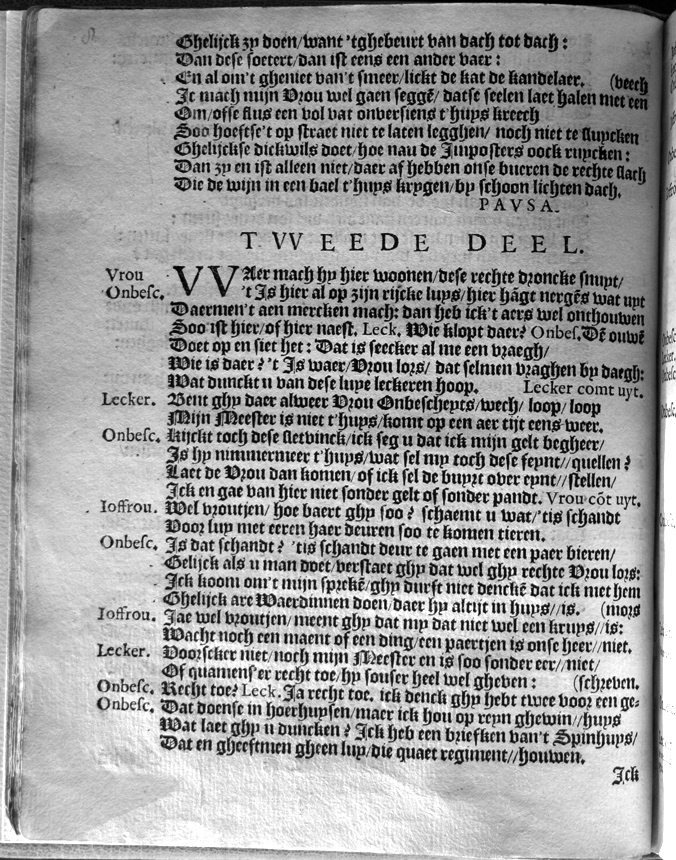 Ghelijck zy doen/want 'tghebeurt van dach tot dach:
Dan dese soetert/dan ist eens een ander vaer:
En al om't gheniet van't smeer/lickt de kat de kandelaer. (veech
Ic mach mijn Vrou wel gaen seggẽ/datse seelen laet halen met een
Om/offe flus een vol vat onversiens t'huys kreech
Soo hoeftse't op straet niet te laten legghen/noch niet te sluycken
Ghelijckse dickwils doet/hoe nau de Imposters oock ruycken:
Dan zy en ist alleen niet/daer af hebben onse bueren de rechte slach
Die de wijn in een bael t'huys krygen/by schoon lichten dach.
PAVSA.
TVVEEDE DEEL.
Vrou Onbesc. VVAer mach hy hier woonen/dese rechte droncke snuyt/
't Is hier al op zijn rijcke luys/hier hãgt nergẽs wat uyt
Daermen't aen mercken mach: dan heb ick't aers wel onthouwen
Soo ist hier/of hier naest. Leck. Wie klopt daer? Onbes. Dẽ ouwẽ
Doet op en siet het: Dat is seecker al me een vraegh/
Wie is daer? 't Is waer/Vrou lors/dat selmen vraghen by daegh:
Wat dunckt u van dese luye leckeren hoop. Lecker comt uyt.
Lecker. Bent ghy daer alweer Vrou Onbescheyts/wech/loop/loop
Mijn Meester is niet t'huys/komt op een aer tijt eens weer.
Onbesc. Kijckt toch dese sletvinck/ick seg u dat ick mijn gelt begheer/
Is hy nimmermeer t'huys/wat sel my toch dese feynt//quellen?
Laet de Vrou dan komen/of ick sel de buyrt over eynt//stellen/
Ick en gae van hier niet sonder gelt of sonder pandt. Vrou cõt uyt.
Ioffrou. Wel vroutjen/hoe baert ghy soo? schaemt u wat/'tis schandt
Voor luy met eeren haer deuren soo te komen tieren.
Onbesc. Is dat schandt? 'tis schandt deur te gaen met een paer bieren/
Gelijck als u man doet/verstaet ghy dat wel ghy rechte Vrou lors:
Ick koom om't mijn sprekẽ/ghy durft niet denckẽ dat ick met hem
Ghelijck are Waerdinnen doen/daer hy altijt in huys//is. (mors
Ioffrou. Jae wel vroutjen/meent ghy dat my dat niet wel een kruys//is:
Wacht noch een maent of een ding/een paertjen is onse heer//niet.
Lecker. Voorseker niet/noch mijn Meester en is soo sonder eer//niet/
Of quamens'er recht toe/hy souser heel wel gheven: (schreven.
Onbesc. Recht toe? Leck. Ja recht toe. ick denck ghy hebt twee voor een ge-
Onbesc. Dat doense in hoerhuysen/maer ick hou op reyn ghewin//huys
Wat laet ghy u duncken? Ick heb een briefken van't Spinhuys/
Dat en gheeftmen gheen luy/die quaet regiment//houwen.
Ick